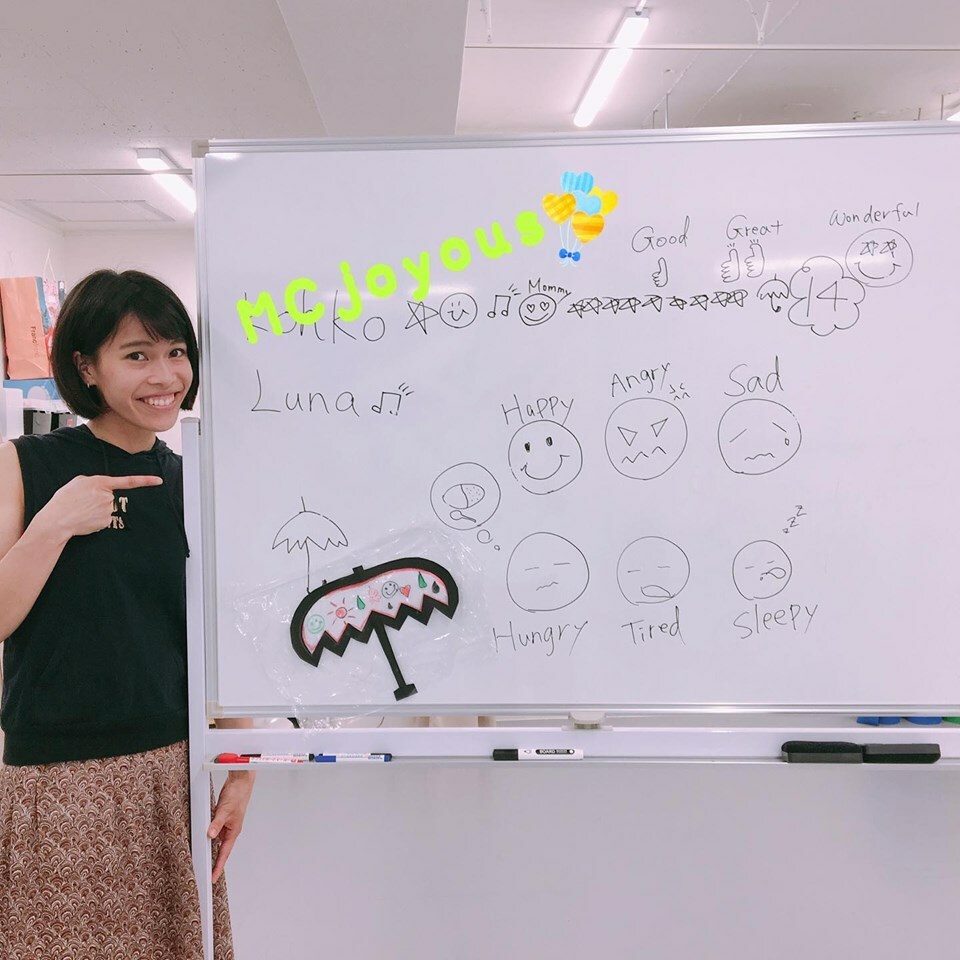 MC joyous
Good Great Wonderful
Mommy
14
Luna
Happy Angry Sad
zzz
Hungry Tired Sleepy
BOARD